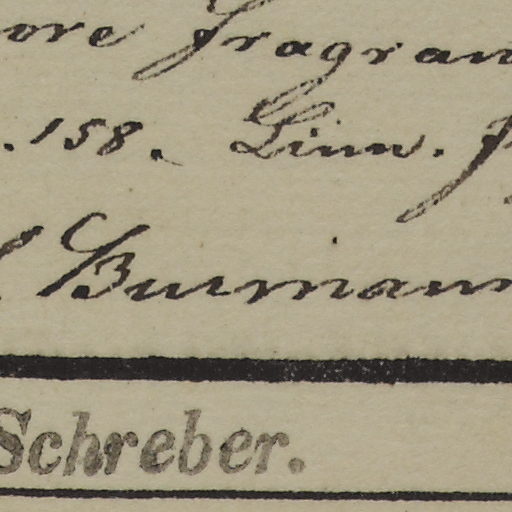 ore fragran
. 158. Linn.
Burmann
Schreber.